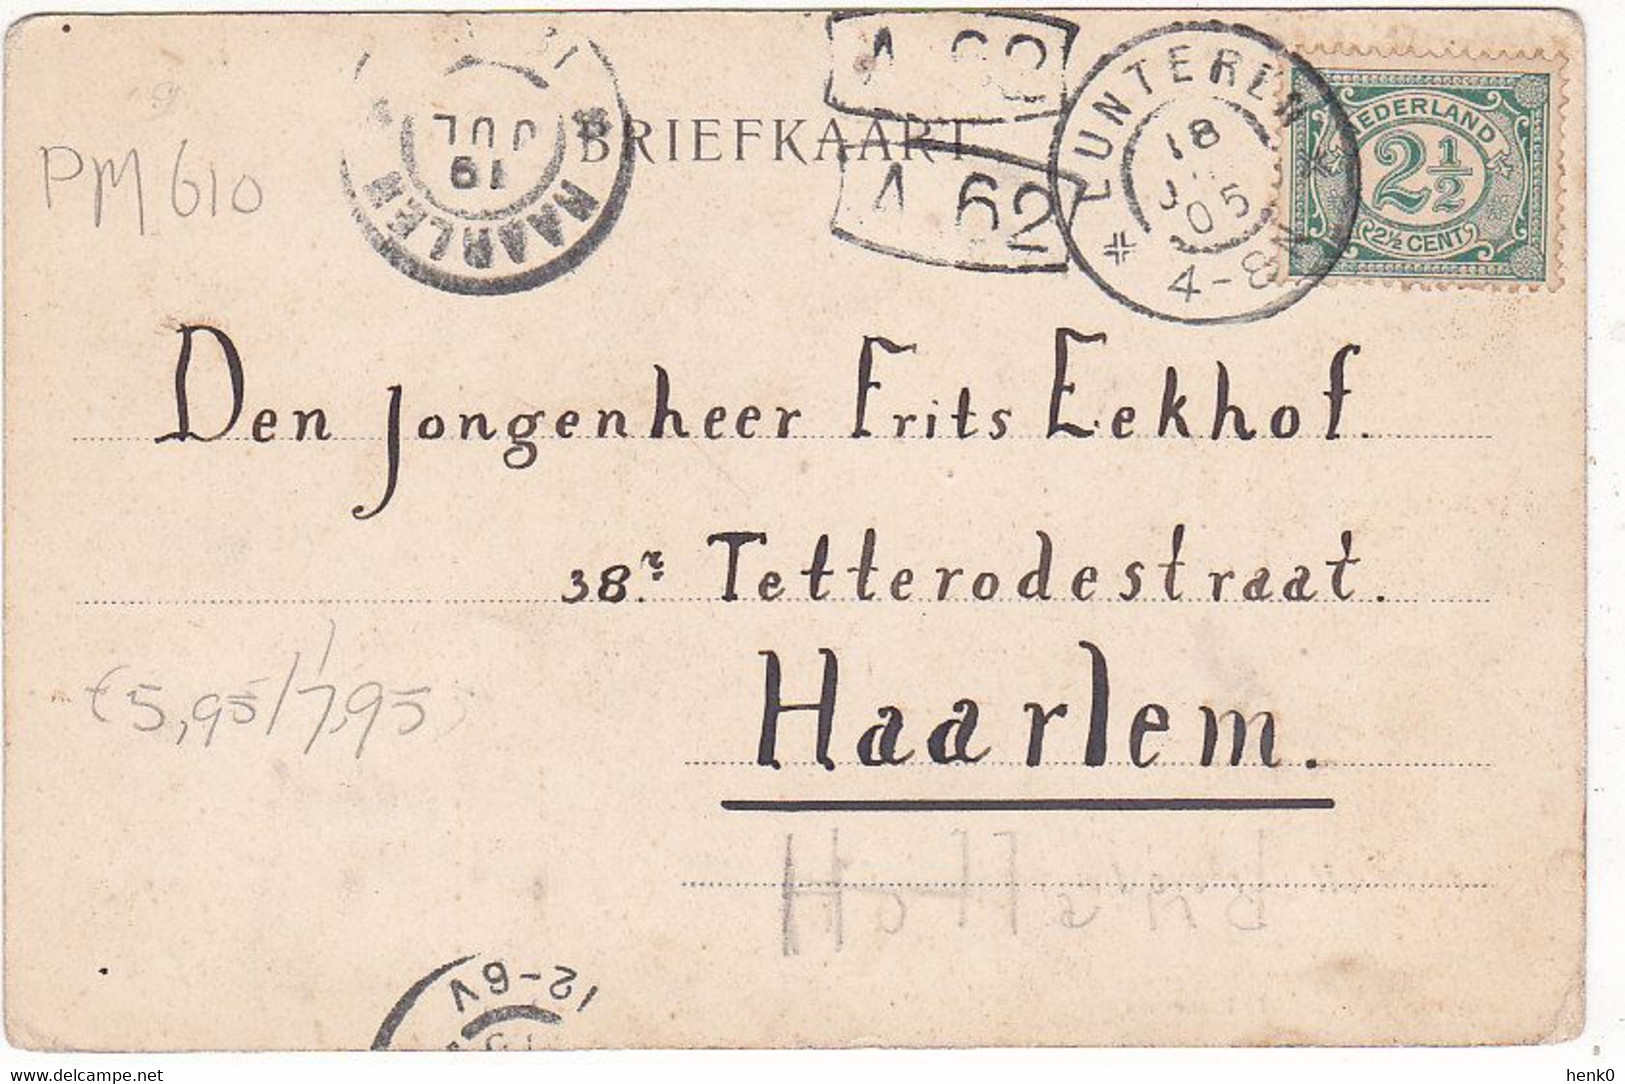 A 62
LUNTEREN
NEDERLAND
2½
2½ CENT
18
05
4-8N
HAARLEM
19
JUL
BRIEFKAART
A 62
PM 610
Den Jongenheer Frits Eekhof.
38r. Tetterodestraat.
Haarlem.
€5,95/7,95
Holland
12-6V
www.delcampe.net
henk0